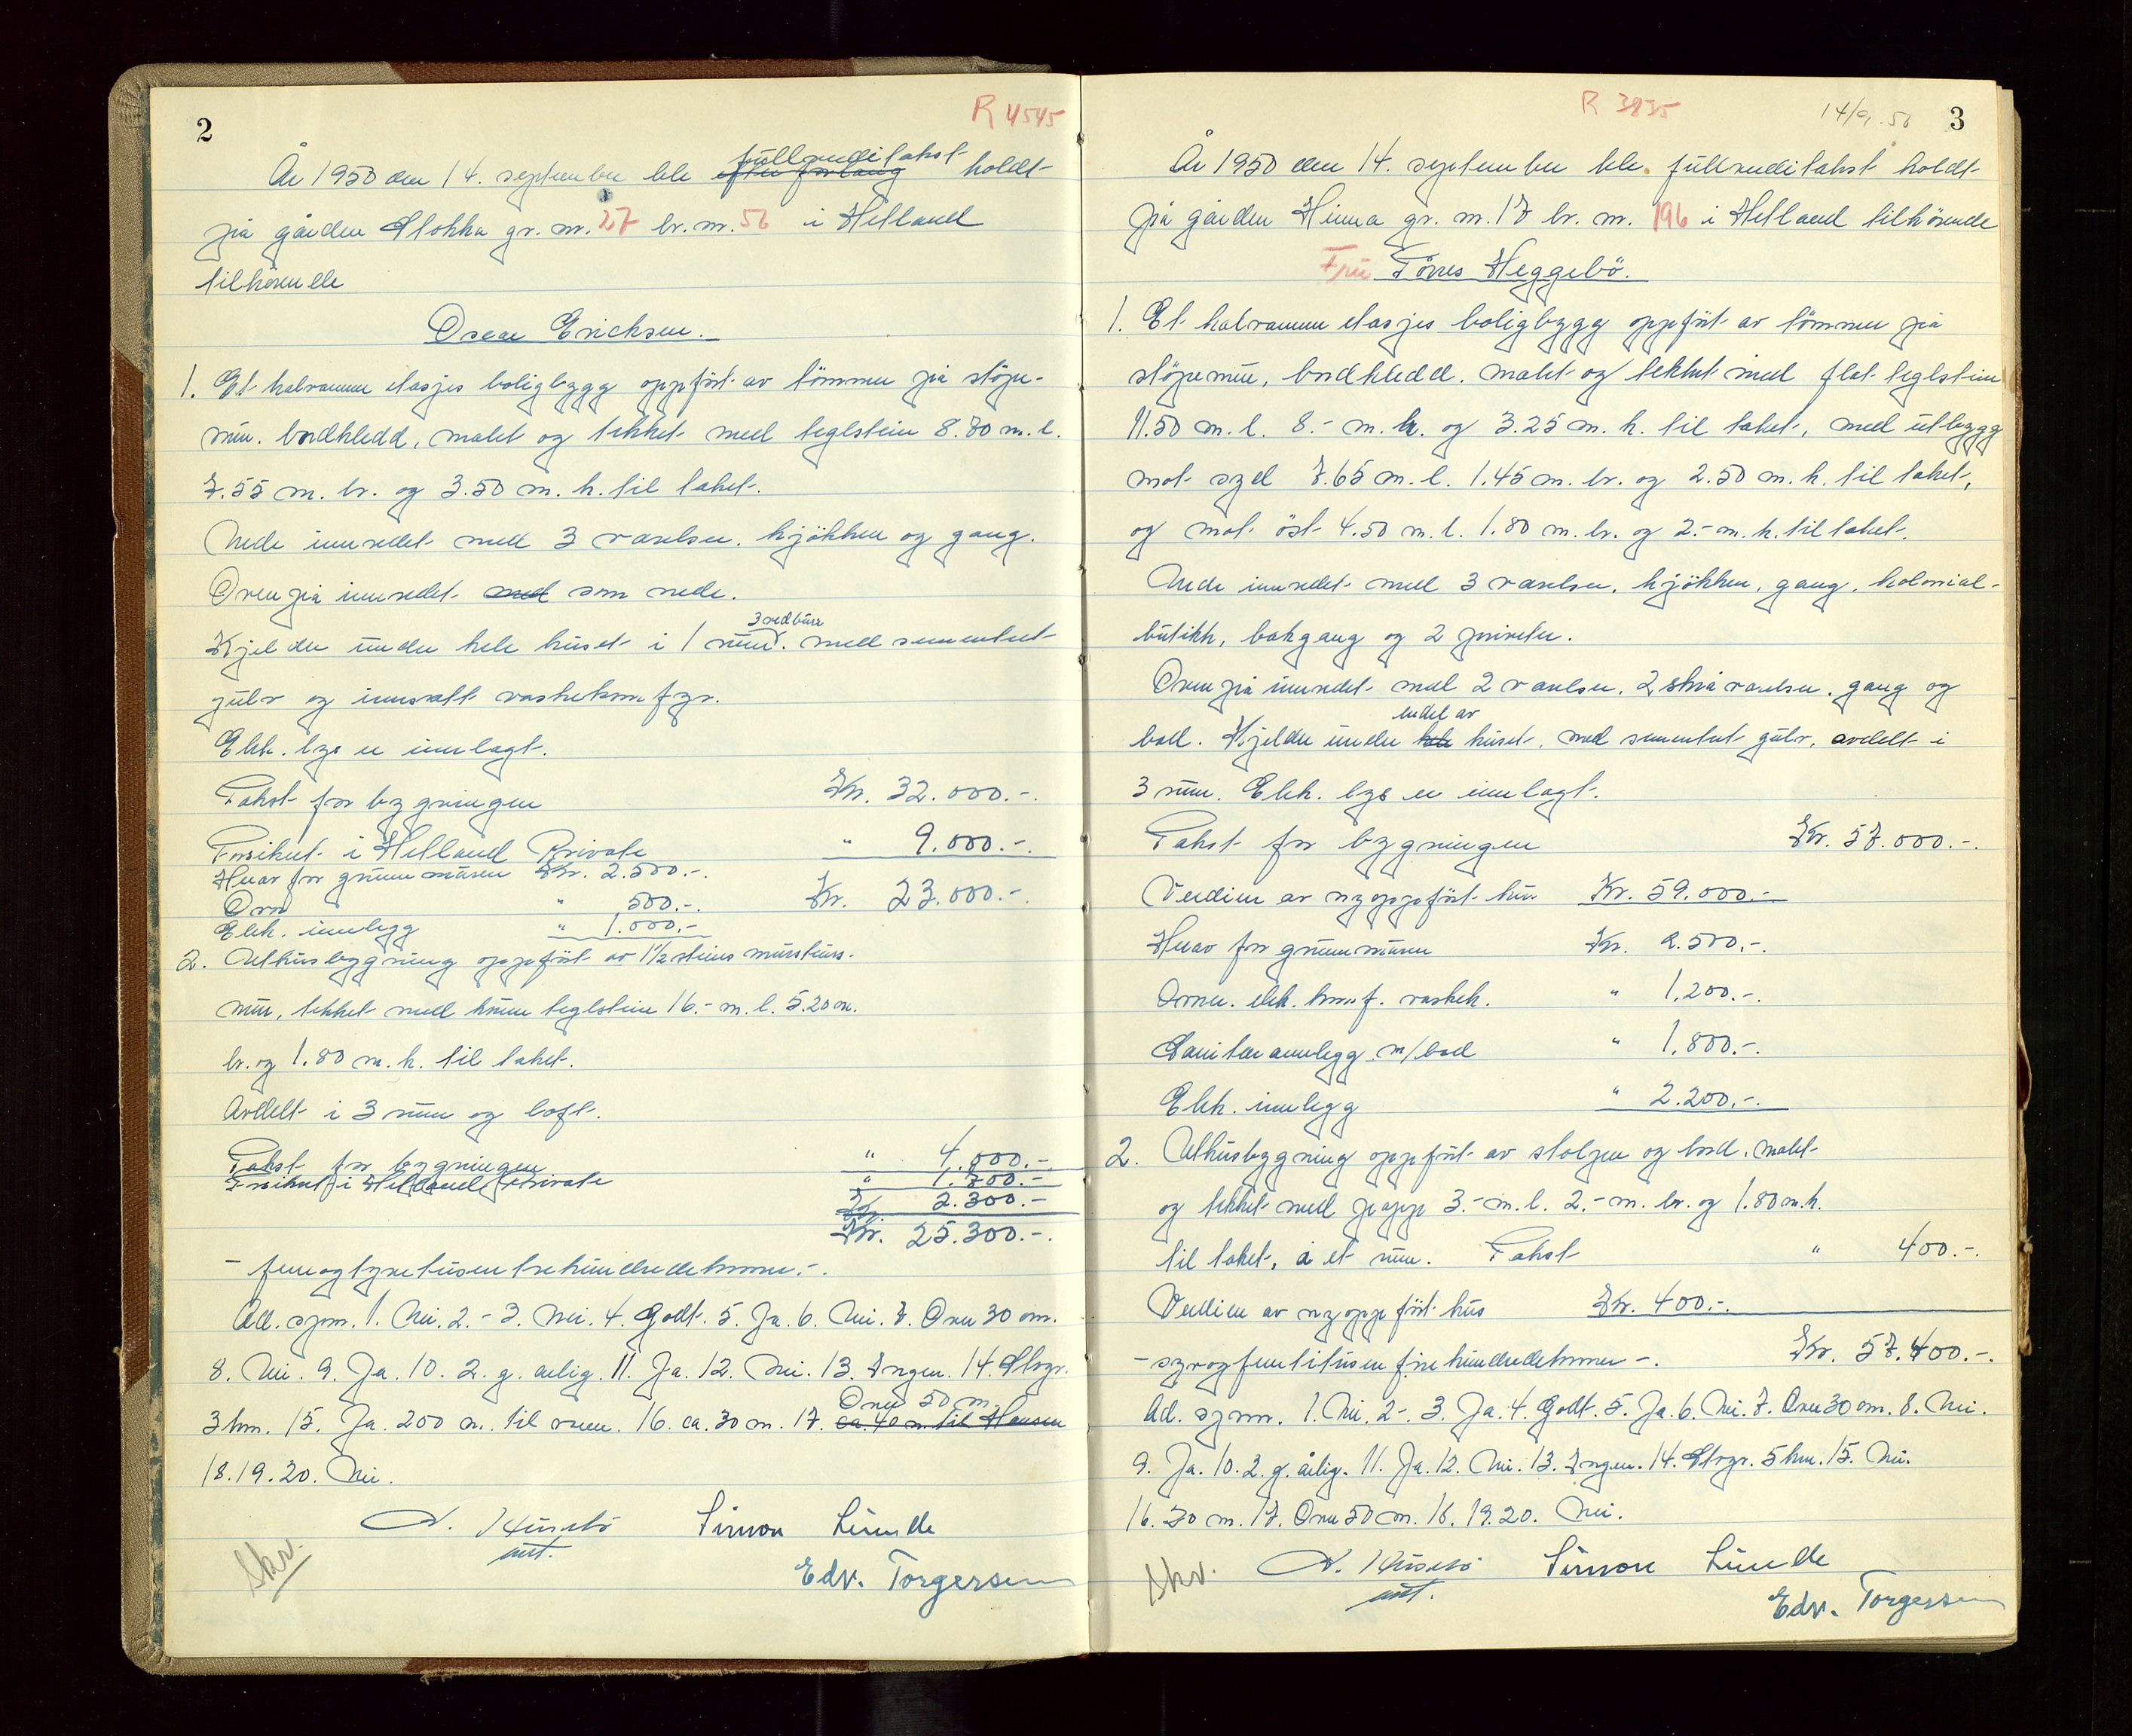 2
R 4545
År 1950 den 14. september ble efter forlang fullverditakst holdt
på gården Stokka gr. nr. 27 br. nr. 56 i Hetland
tilhørende
Oscar Ericksen.
1. Et halvannen etasjes boligbygg oppført av tømmer på støpe-
mur. bordkledd, malt og tekket med teglstein 8.80 m. l.
7.55 m. br. og 3.50 m. h. til taket.
Nede innredet med 3 værelser. kjøkken og gang.
Oven på innredet med som nede.
Kjelder under hele huset i 1 rum. 3 vedbuer med sementert
gulv og innsatt vaskekomfyr.
Elek. lys er innlagt.
Takst for bygningen Kr. 32.000.-.
Forsikret i Hetland Private " 9.000.-.
Herav for grunnmuren Kr. 2.500.-.
Kr. 23.000.-.
Ovn " 500.-.
Elek. innlegg " 1.000.-
2. Uthusbygning oppført av 1½ steins murstens-
mur, tekket med krum teglstein 16.- m. l. 5.20 m.
br. og 1.80 m. h. til taket.
Avdelt i 3 rum og loft.
Takst for bygningen " 4.000.-.
Forsikret i Hetland Private " 1.700.-
Kr. 2.300.-
Kr. 25.300.-.
- femogtyvetusentrehundredekroner.-.
Ad. spm. 1. Nei. 2.- 3. Nei. 4. Godt. 5. Ja. 6. Nei. 7. Over 30 cm.
8. Nei. 9. Ja. 10. 2. g. årlig. 11. Ja. 12. Nei. 13. Ingen. 14. Stvgr.
3 km. 15. Ja. 200 m. til vann. 16. ca. 30 m. 17. ca. 40 m. til Hansen Over 50 m.
18. 19. 20. Nei.
Skv. N. Husebø Simon Lunde
Edv. Torgersen
R 3835
14/9.50
3
År 1950 den 14. september ble fullverditakst holdt
på gården Hinna gr. nr. 17 br. nr. 196 i Hetland tilhørende
Fru Tönes Heggebö.
1. Et halvannen etasjes boligbygg oppført av tømmer på
støpemur, bordkledd. malt og tekket med flat teglstein
11.50 m. l. 8.- m. br. og 3.25 m. h. til taket, med utbygg
mot syd 7.65 m. l. 1.45 m. br. og 2.50 m. h. til taket,
og mot øst 4.50 m. l. 1.80 m. br. og 2.- m. h. til taket.
Nede innredet med 3 værelser, kjøkken, gang, kolonial-
butikk, bakgang og 2 priveter.
Oven på innredet med 2 værelser. 2 skråværelser, gang og
bad. Kjelder under hele endel av huset, med sementert gulv, avdelt i
3 rum. Elek. lys er innlagt.
Takst for bygningen Kr. 57.000.-.
Verdien av nyoppført hus Kr. 59.000.-
Herav for grunnmuren Kr. 2.500.-.
Ovner. elek. komf. vaskek. " 1.200.-.
Sanitæranlegg m/bad " 1.800.-.
Elek. innlegg " 2.200.-.
2. Uthusbygning oppført av stolper og bord. malt
og tekket med papp 3.- m. l. 2.- m. br. og 1.80 m. h.
til taket, i et rum. Takst " 400.-.
Verdien av nyoppført hus Kr. 400.-.
- syvogfemtitusenfirehundredekroner -. Kr. 57.400.-.
Ad. spm. 1. Nei. 2-. 3. Ja. 4. Godt. 5. Ja. 6. Nei. 7. Over 30 cm. 8. Nei.
9. Ja. 10. 2. g. årlig. 11. Ja. 12. Nei. 13. Ingen. 14. Stvgr. 5 km. 15. Nei.
16. 30 m. 17. Over 50 m. 18. 19. 20. Nei.
Skv. N. Husebø Simon Lunde
Edv. Torgersen